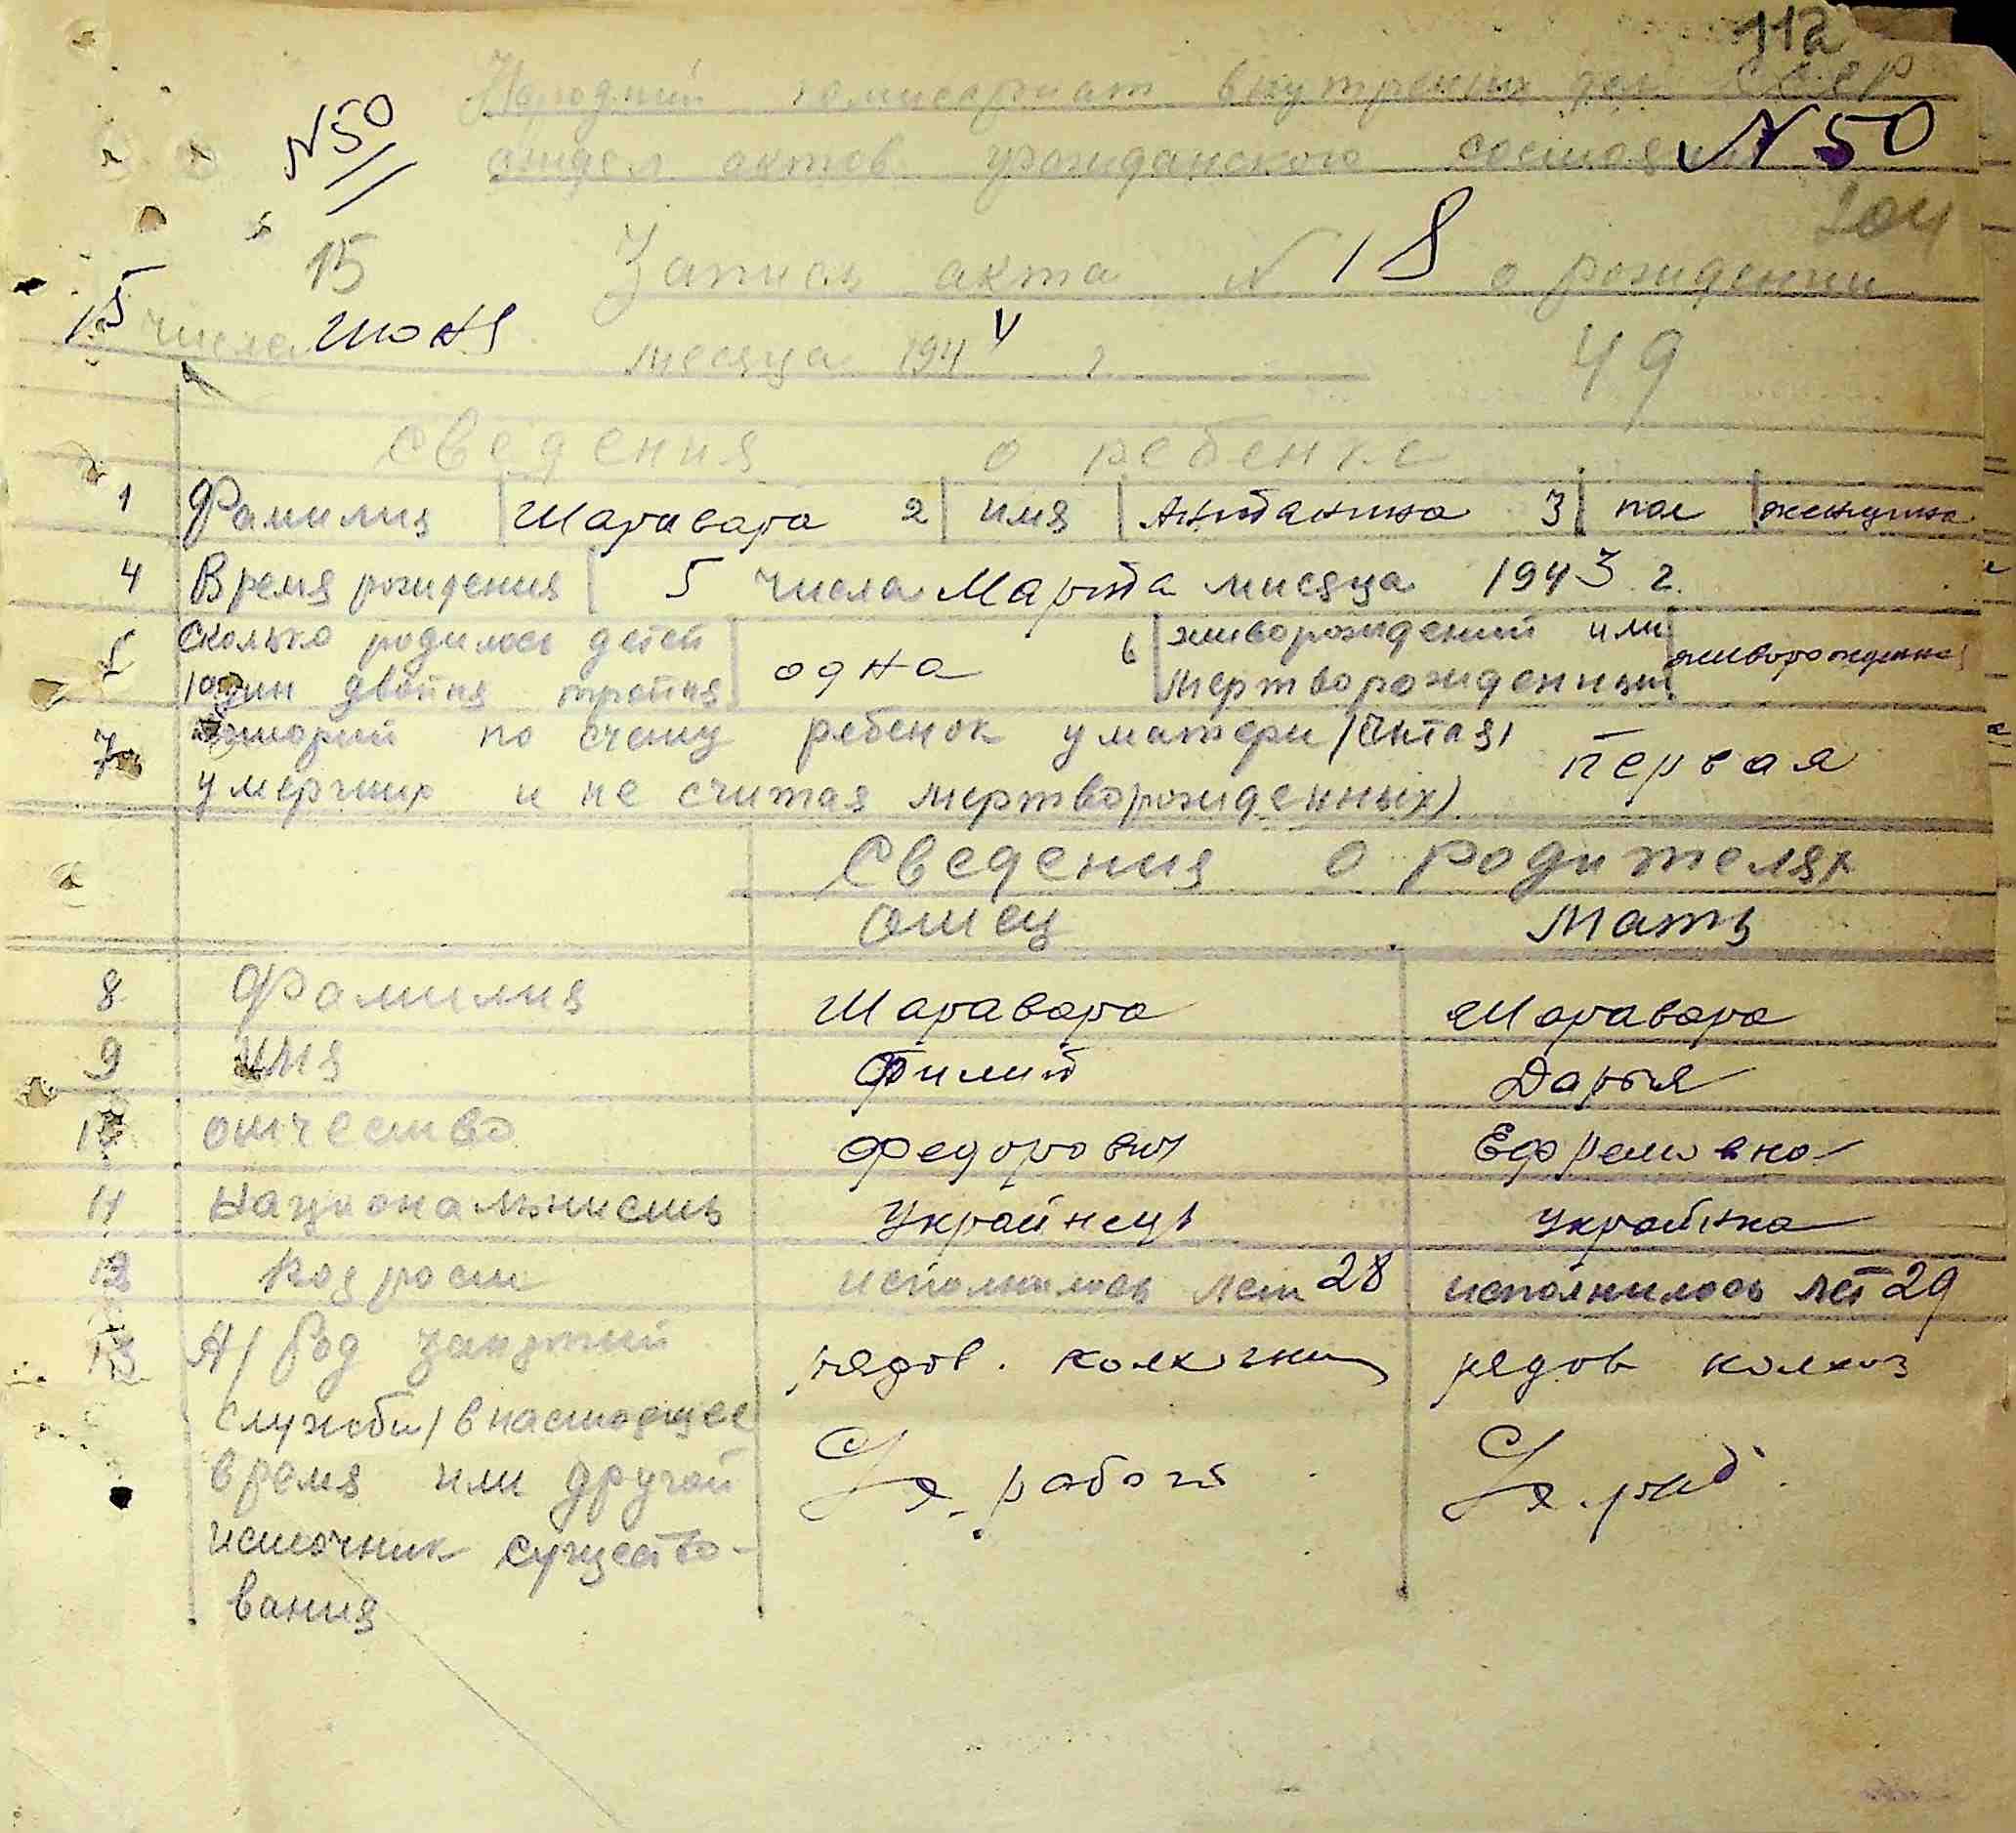 112
Народний комисариат внутрених дел СССР
N50
отдел актов гражданского состояния N 50
204
15 Запись акта N 18 о рождении
15 числа июня месяца 1944 г 49
сведения о ребенке
1 Фамилия Шаравара 2 имя Антанина 3 пол женщина
4 Время рождения 5 числа Марта мисяца 1943 г.
5 Сколько родилось детей
один двойня тройня одна 6 живорождений или
мертворожденный живорожденная
7 который по счету ребенок у матери (считая
умерших и не считая мертворожденных) первая
Сведения о родителях
отец Мать
8 Фамилия Шаравара Шаравара
9 имя Филип Дарья
10 отчество Федорович Ефремовна
11 Национальнисть Украйнець Украйнка
12 Возрост исполнилось лет 28 исполнилось лет 29
13 А) Род занятий рядов. колхозник рядов колхоз
службы) в настоящее
время или другой С/х. работ С/х. раб.
источник существо-
вания